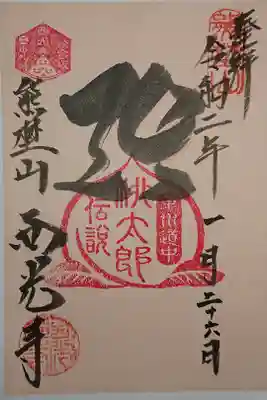 奉拝
令和二年 一月二十六日
甲州道中
桃太郎
伝説
熊埜山 西光寺